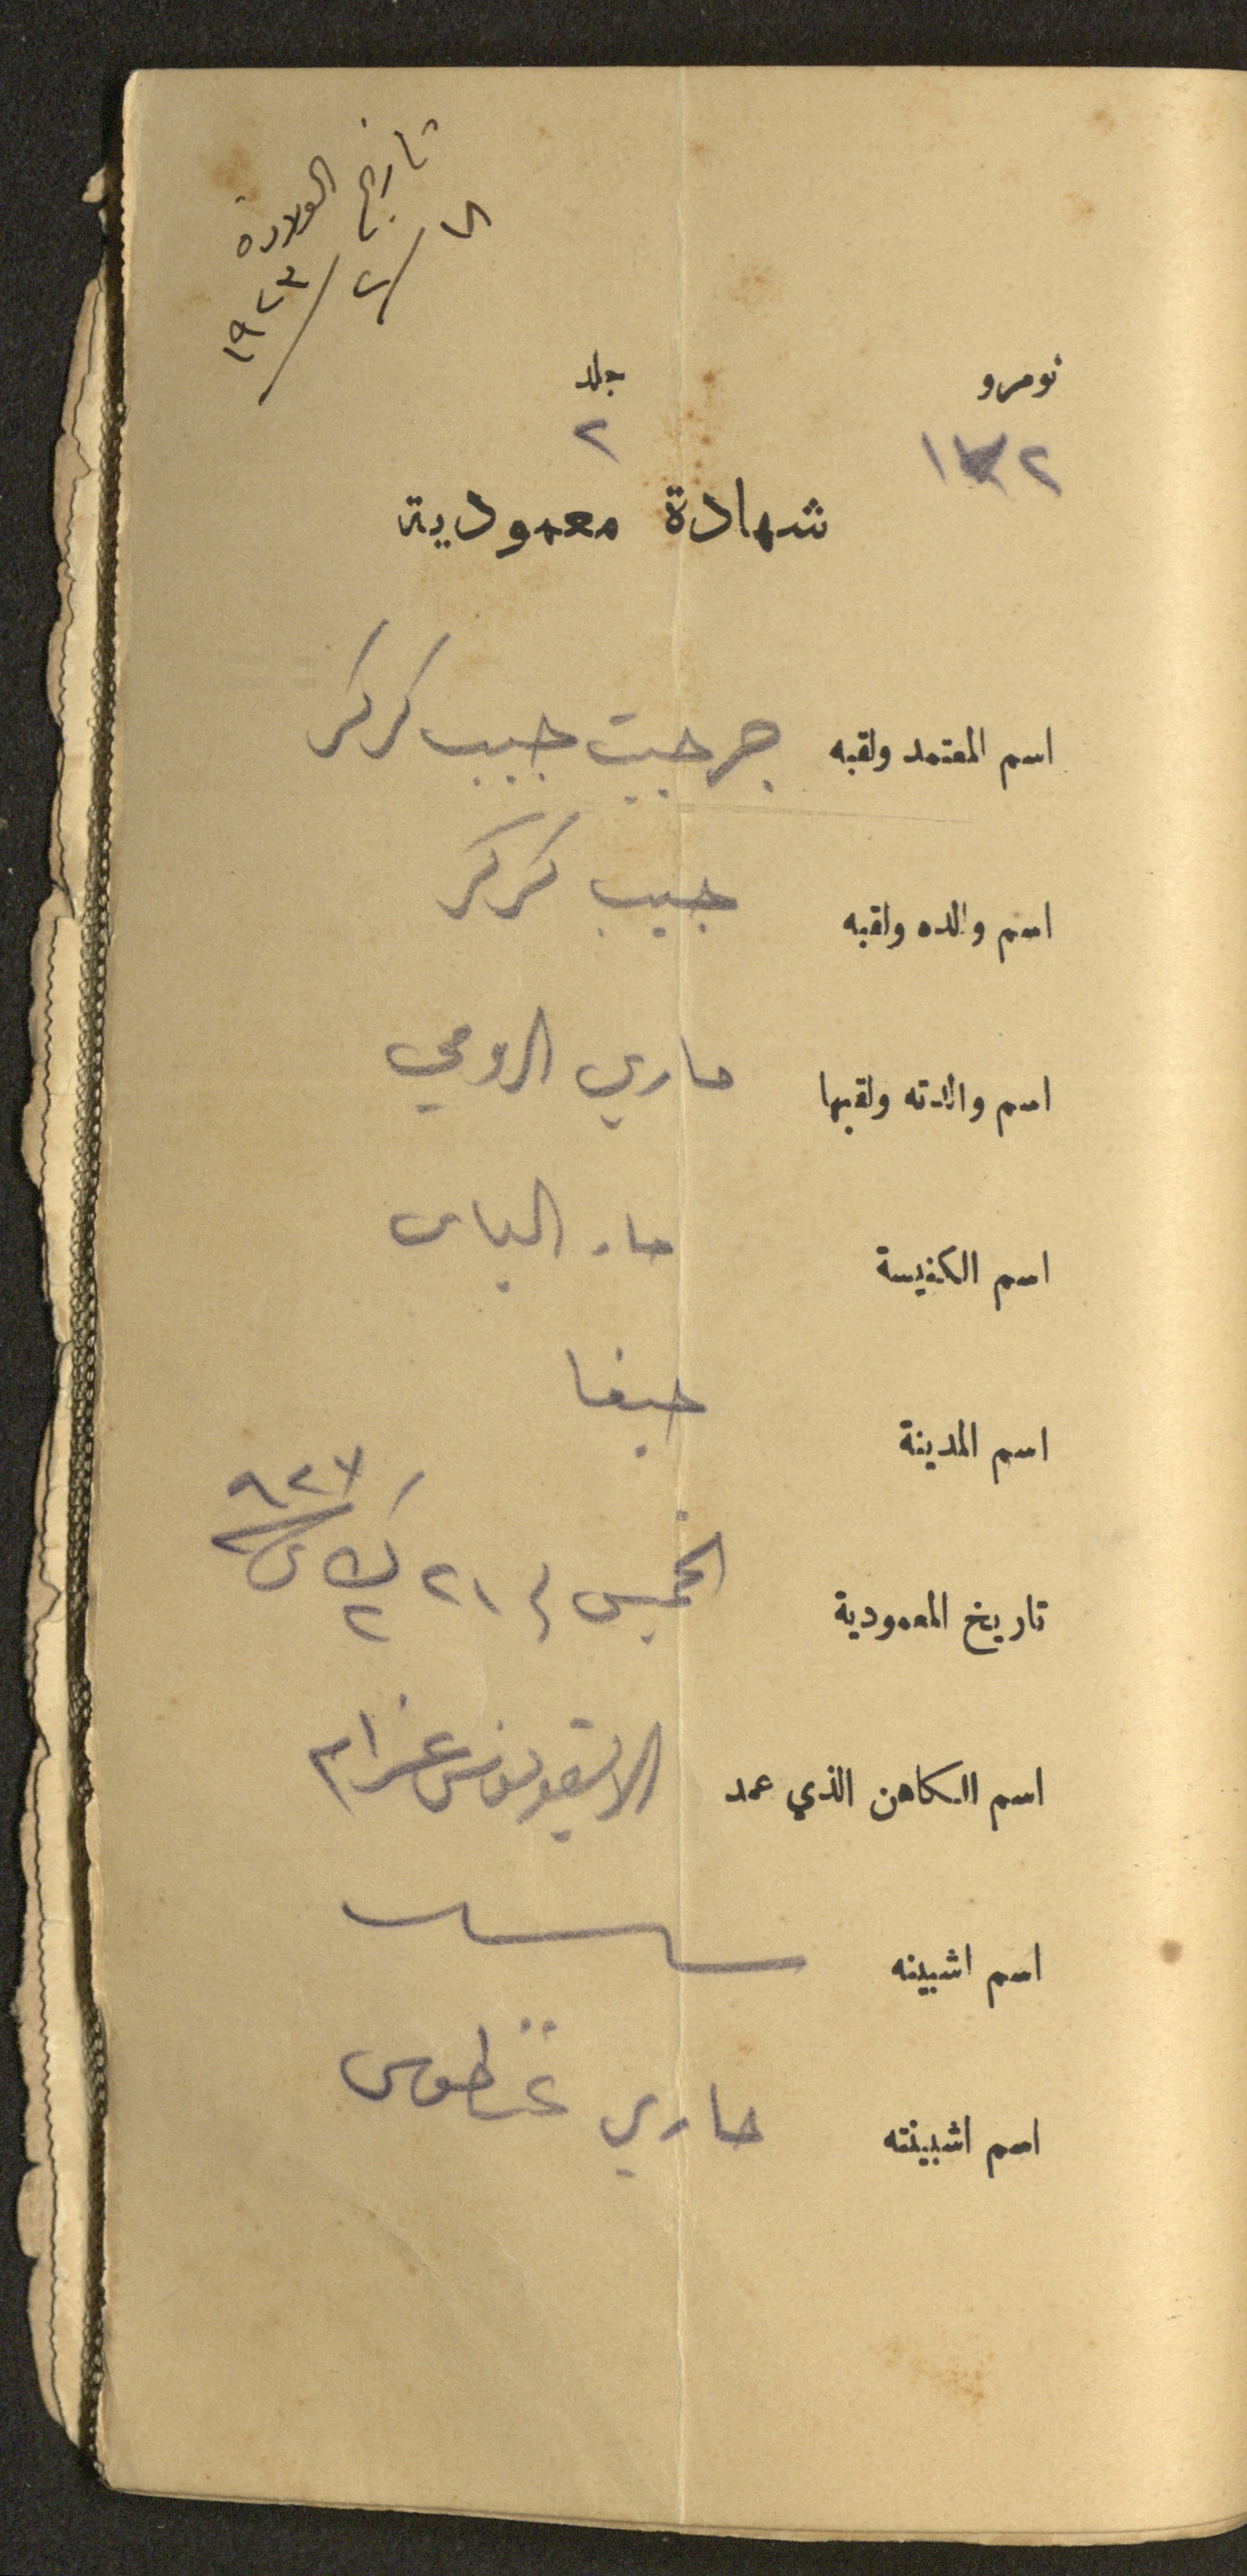 تاريخ الولادة
٧ / ٢ / ١٩٢٣
نومرو جلد
١٧٢ ٢
شهادة معمودية
اسم المعتمد ولقبه جرجيت حبيب كركر
اسم والده ولقبه حبيب كركر
اسم والدته ولقبها ماري الرومي
اسم الكنيسة مار الياس
اسم المدينة حيفا
تاريخ المعمودية الخميس في ٢١ ك٢ ٩٢٧
اسم الكاهن الذي عمد عزام
اسم اشبينه
اسم اشبينته ماري غطوس